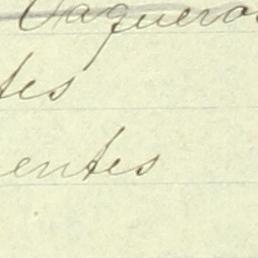 Vaqueros
tes
entes